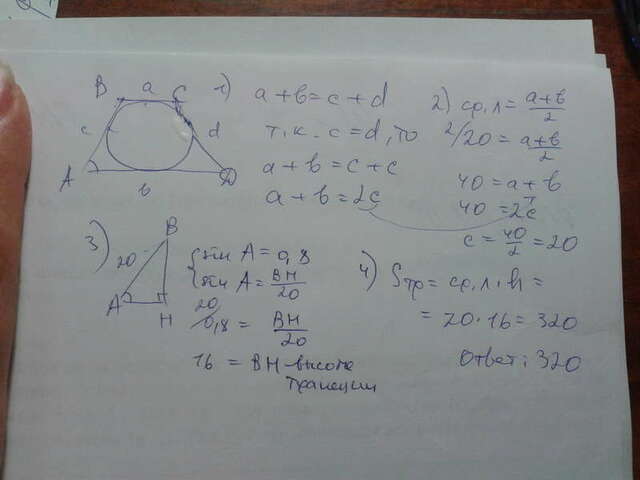 B a C
c d
A b D
1) a + b = c + d
т.к. c = d, то
a + b = c + c
a + b = 2c
2) ср.л = \frac{a+b}{2}
2/20 = \frac{a+b}{2}
40 = a + b
40 = 2c
c = \frac{40}{2} = 20
3) B
20
A
H
sin A = 0,8
sin A = \frac{BH}{20}
20
0,8 = \frac{BH}{20}
16 = BH - высота
трапеции
4) Sтр = ср.л. h =
= 20 · 16 = 320
Ответ: 320